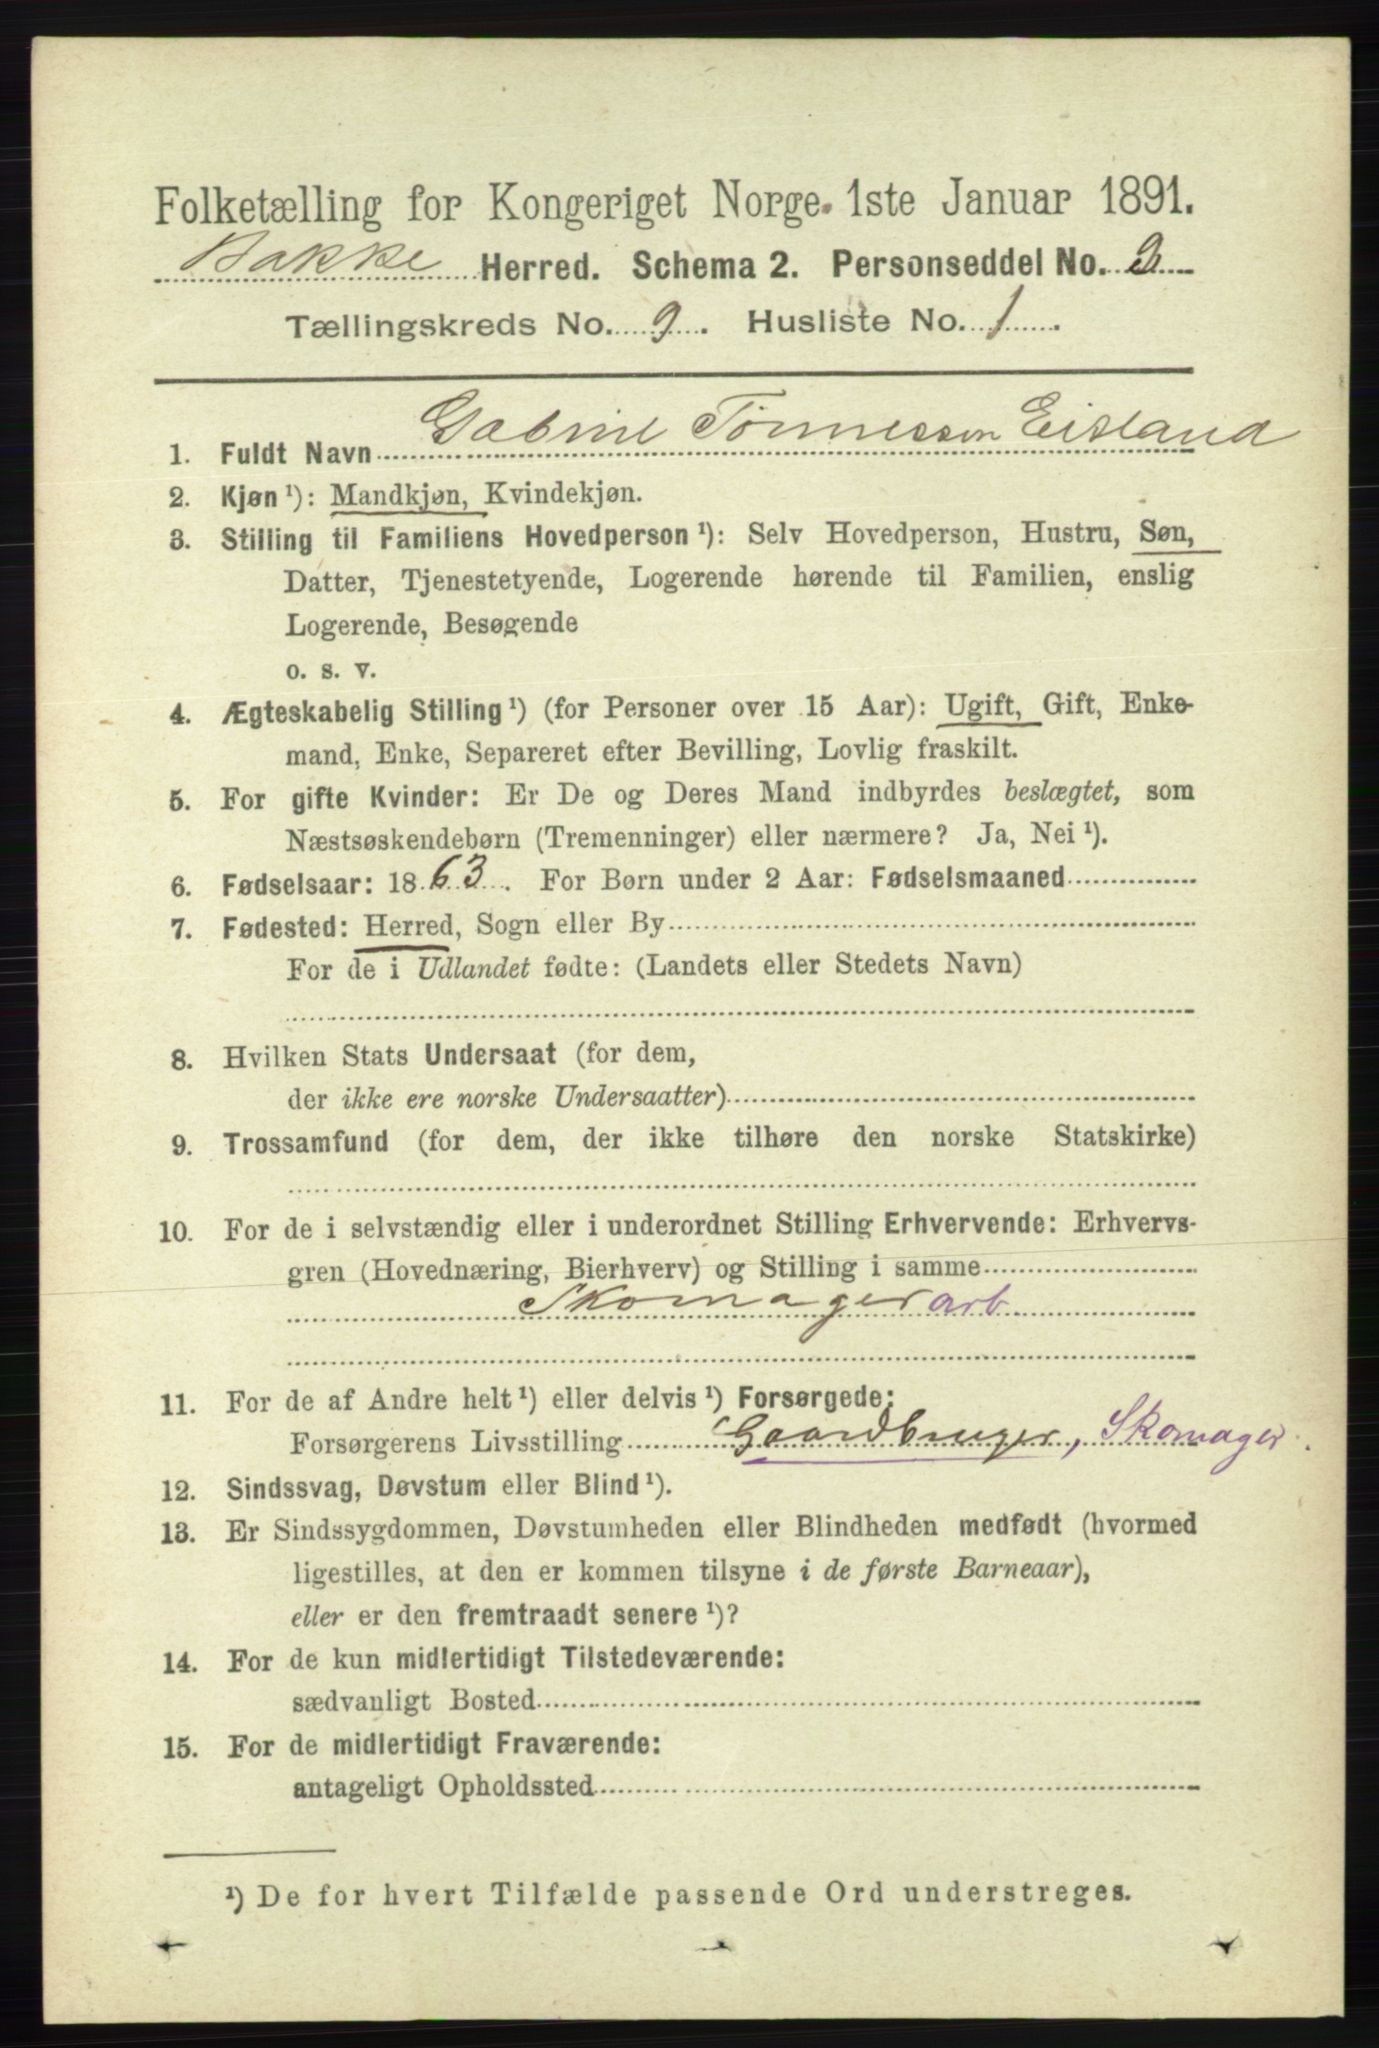 Folketælling for Kongeriget Norge 1ste Januar 1891.
Bakke Herred. Schema 2. Personseddel No. 3
Tællingskreds No. 9. Husliste No. 1.
1. Fuldt Navn Gabriel Tønnessen Eisland
2. Kjøn ¹): Mandkjøn, Kvindekjøn.
3. Stilling til Familiens Hovedperson ¹): Selv Hovedperson, Hustru, Søn,
Datter, Tjenestetyende, Logerende hørende til Familien, enslig
Logerende, Besøgende
o. s. v.
4. Ægteskabelig Stilling ¹) (for Personer over 15 Aar): Ugift, Gift, Enke-
mand, Enke, Separeret efter Bevilling, Lovlig fraskilt.
5. For gifte Kvinder: Er De og Deres Mand indbyrdes beslægtet, som
Næstsøskendebørn (Tremenninger) eller nærmere? Ja, Nei ¹).
6. Fødselsaar: 1863. For Børn under 2 Aar: Fødselsmaaned
7. Fødested: Herred, Sogn eller By
For de i Udlandet fødte: (Landets eller Stedets Navn)
8. Hvilken Stats Undersaat (for dem,
der ikke ere norske Undersaatter)
9. Trossamfund (for dem, der ikke tilhøre den norske Statskirke)
10. For de i selvstændig eller i underordnet Stilling Erhvervende: Erhvervs-
gren (Hovednæring, Bierhverv) og Stilling i samme
Skomager arb
11. For de af Andre helt ¹) eller delvis ¹) Forsørgede:
Forsørgerens Livsstilling Gaardbruger, Skomager.
12. Sindssvag, Døvstum eller Blind ¹).
13. Er Sindssygdommen, Døvstumheden eller Blindheden medfødt (hvormed
ligestilles, at den er kommen tilsyne i de første Barneaar),
eller er den fremtraadt senere ¹)?
14. For de kun midlertidigt Tilstedeværende:
sædvanligt Bosted
15. For de midlertidigt Fraværende:
antageligt Opholdssted
¹) De for hvert Tilfælde passende Ord understreges.